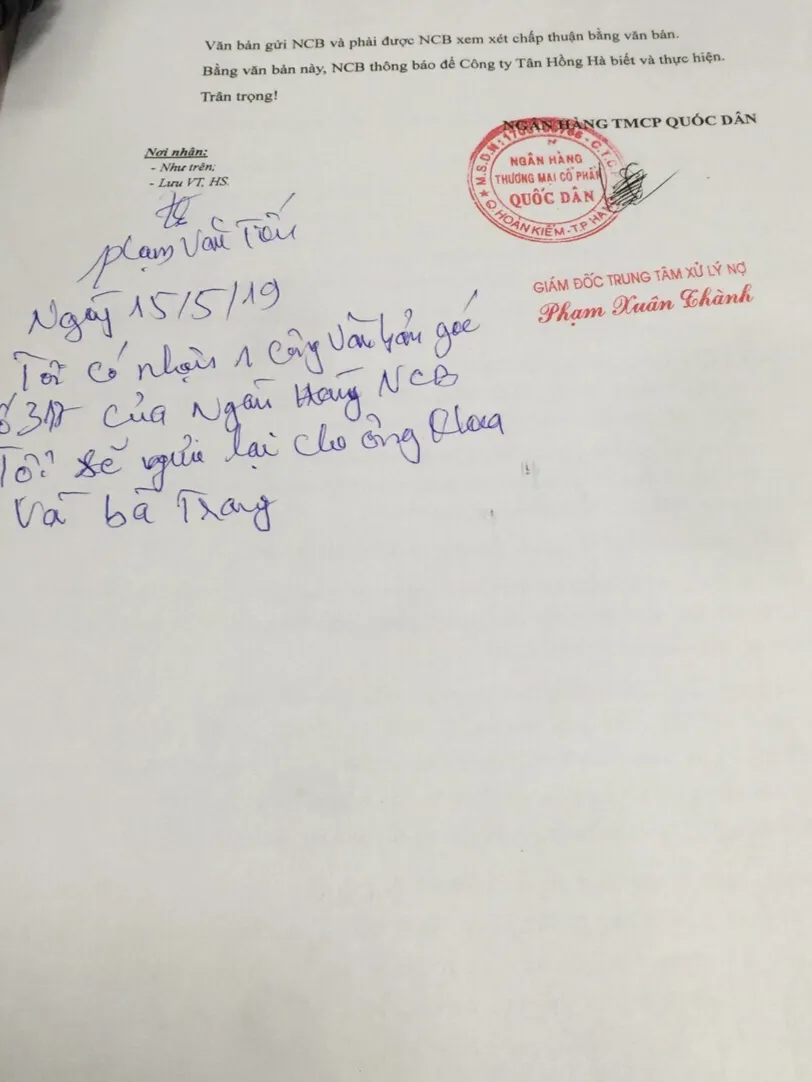 Văn bản gửi NCB và phải được NCB xem xét chấp thuận bằng văn bản.
Bằng văn bản này, NCB thông báo để Công ty Tân Hồng Hà biết và thực hiện.
Trân trọng!
NGÂN HÀNG TMCP QUỐC DÂN
Nơi nhận:
- Như trên;
- Lưu VT, HS.
M.S.D.N:
C.T.C.P
NGÂN HÀNG
THƯƠNG MẠI CỔ PHẦN
QUỐC DÂN
Q.HOÀN KIẾM-T.P HÀ
GIÁM ĐỐC TRUNG TÂM XỬ LÝ NỢ
Phạm Xuân Thành
Phạm Văn Tiến
Ngày 15/5/19
Tôi có nhận 1 công văn bản gốc
số 317 của Ngân Hàng NCB
Tôi sẽ gửi lại cho ông
Và bà Trang